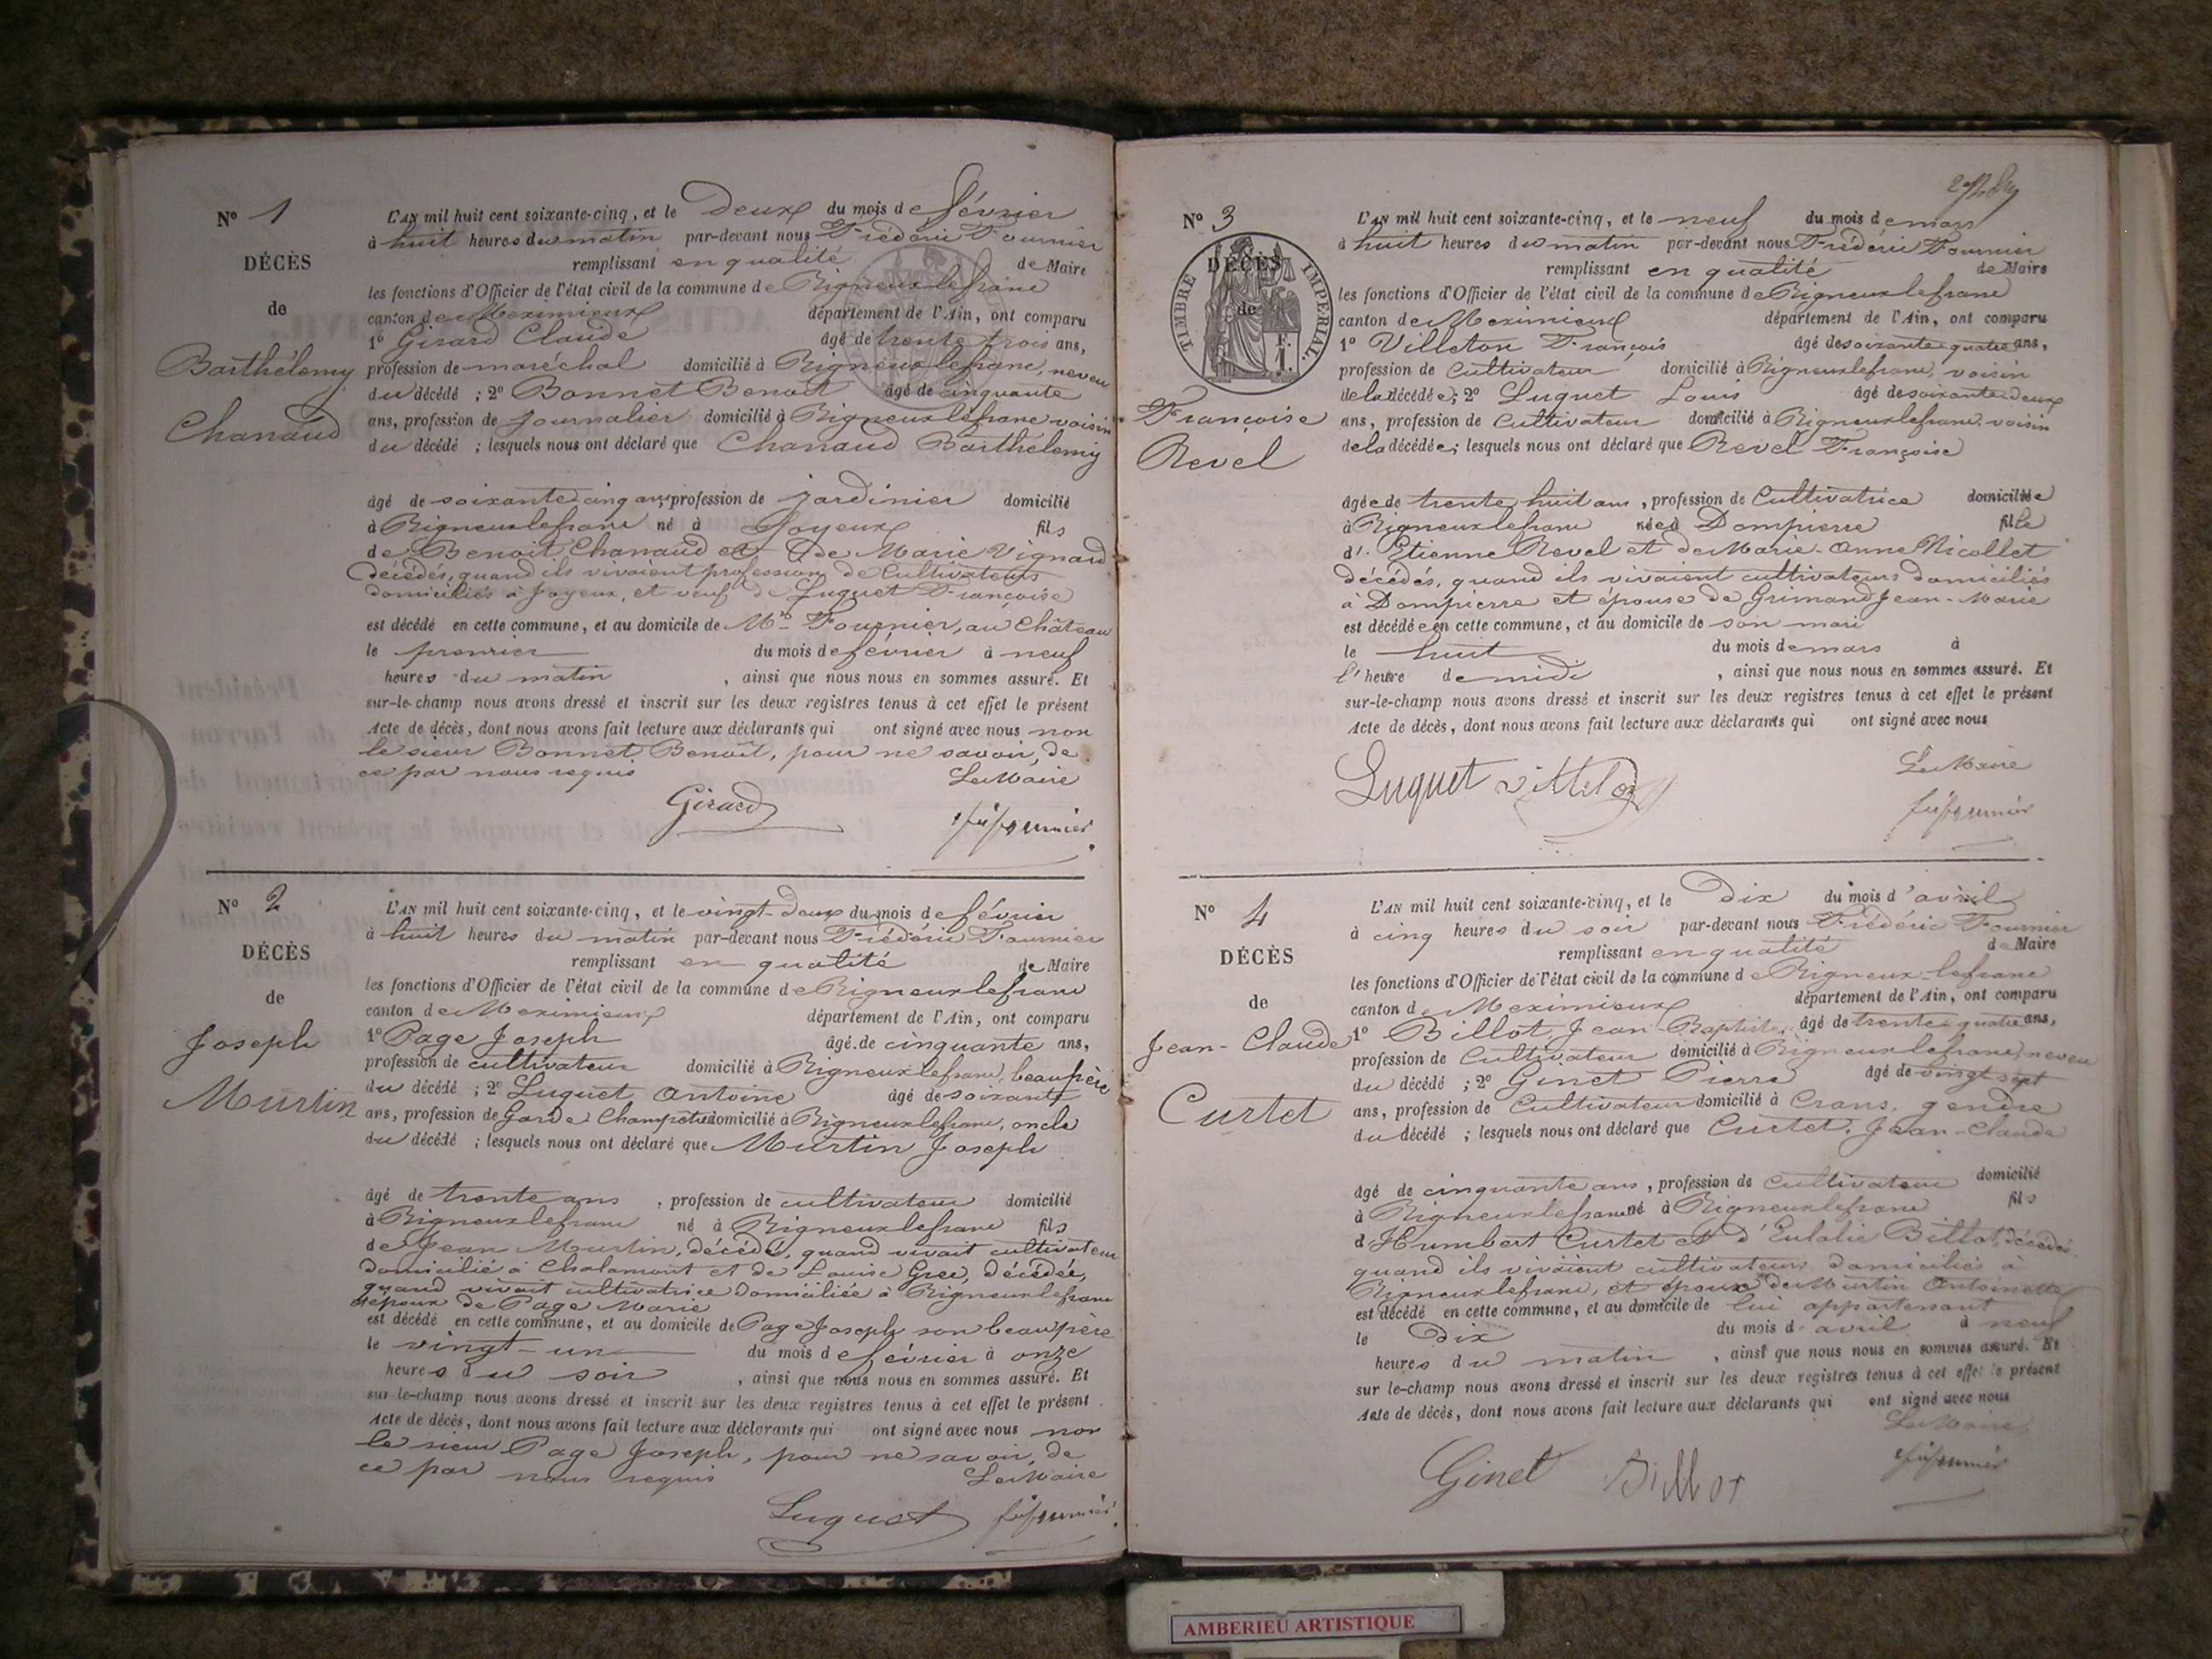 N° 1
DÉCÈS
de
Barthélemy
Chanaud
L'AN mil huit cent soixante-cinq, et le deux du mois de février
à huit heures du matin par-devant nous Frédéric Fournier
remplissant en qualité de Maire
les fonctions d'Officier de l'état civil de la commune de Rigneuxlefranc
canton de Meximieux département de l'Ain, ont comparu
1° Girard Claude âgé de trente trois ans,
profession de maréchal domicilié à Rigneuxlefranc, neveu
du décédé ; 2° Bonnet Benoit âgé de cinquante
ans, profession de journalier domicilié à Rigneuxlefranc voisin
du décédé ; lesquels nous ont déclaré que Chanaud Barthélemy
âgé de soixante cinq ans, profession de jardinier domicilié
à Rigneuxlefranc né à Joyeux fils
de Benoit Chanaud et de Marie Vignard
décédés, quand ils vivaient profession de Cultivateurs
domiciliés à Joyeux, et veuf de Luguet Françoise
est décédé en cette commune, et au domicile de Mr Fournier, au Château
le premier du mois de février à neuf
heures du matin , ainsi que nous nous en sommes assuré. Et
sur-le-champ nous avons dressé et inscrit sur les deux registres tenus à cet effet le présent
Acte de décès, dont nous avons fait lecture aux déclarants qui ont signé avec nous non
le sieur Bonnet Benoît, pour ne savoir, de
ce par nous requis Le Maire
Girard fr fournier
N° 2
DÉCÈS
de
Joseph
Murtin
L'AN mil huit cent soixante-cinq, et le vingt-deux du mois de février
à huit heures du matin par-devant nous Frédéric Fournier
remplissant en qualité de Maire
les fonctions d'Officier de l'état civil de la commune de Rigneuxlefranc
canton de Meximieux département de l'Ain, ont comparu
1° Page Joseph âgé de cinquante ans,
profession de cultivateur domicilié à Rigneuxlefranc, beaupère
du décédé ; 2° Luguet Antoine âgé de soixante
ans, profession de Garde Champêtre domicilié à Rigneuxlefranc, oncle
du décédé ; lesquels nous ont déclaré que Murtin Joseph
âgé de trente ans , profession de cultivateur domicilié
à Rigneuxlefranc né à Rigneuxlefranc fils
de Jean Murtin, décédé, quand vivait cultivateur
domicilié à Chalamont et de Louise Gree, décédée,
quand vivait cultivatrice domiciliée à Rigneuxlefranc
époux de Page Marie
est décédé en cette commune, et au domicile de Page Joseph son beaupère
le vingt-un du mois de février à onze
heures du soir , ainsi que nous nous en sommes assuré. Et
sur-le-champ nous avons dressé et inscrit sur les deux registres tenus à cet effet le présent
Acte de décès, dont nous avons fait lecture aux déclarants qui ont signé avec nous non
le sieur Page Joseph, pour ne savoir, de
ce par nous requis Le Maire
Luguet fr fournier
N° 3
TIMBRE IMPERIAL
F.
1.
DÉCÈS
de
Françoise
Revel
L'AN mil huit cent soixante-cinq, et le neuf du mois de mars
à huit heures du matin par-devant nous Frédéric Fournier
remplissant en qualité de Maire
les fonctions d'Officier de l'état civil de la commune de Rigneuxlefranc
canton de Meximieux département de l'Ain, ont comparu
1° Villeton François âgé de soixante quatre ans,
profession de Cultivateur domicilié à Rigneuxlefranc, voisin
de la décédée ; 2° Luguet Louis âgé de soixante deux
ans, profession de Cultivateur domicilié à Rigneuxlefranc. voisin
de la décédée ; lesquels nous ont déclaré que Revel Françoise
âgée de trente huit ans , profession de Cultivatrice domiciliée
à Rigneuxlefranc née à Dompierre fille
d'Etienne Revel et de Marie-Anne Nicollet
décédés, quand ils vivaient cultivateurs domiciliés
à Dompierre et épouse de Grimand Jean-Marie
est décédée en cette commune, et au domicile de son mari
le huit du mois de mars à
l'heure de midi , ainsi que nous nous en sommes assuré. Et
sur-le-champ nous avons dressé et inscrit sur les deux registres tenus à cet effet le présent
Acte de décès, dont nous avons fait lecture aux déclarants qui ont signé avec nous
Le Maire
Luguet villeton fr fournier
N° 4
DÉCÈS
de
Jean-Claude
Curtet
L'AN mil huit cent soixante-cinq, et le Dix du mois d'avril
à cinq heures du soir par-devant nous Frédéric Fournier
remplissant en qualité de Maire
les fonctions d'Officier de l'état civil de la commune de Rigneux lefranc
canton de Meximieux département de l'Ain, ont comparu
1° Billot, Jean-Baptiste, âgé de trente quatre ans,
profession de Cultivateur domicilié à Rigneuxlefranc, neveu
du décédé ; 2° Ginet Pierre âgé de vingt sept
ans, profession de Cultivateur domicilié à Crans, gendre
du décédé ; lesquels nous ont déclaré que Curtet, Jean-Claude
âgé de cinquante ans, profession de cultivateur domicilié
à Rigneuxlefranc né à Rigneuxlefranc fils
d'Humbert Curtet et d'Eulalie Billot, décédés
quand ils vivaient cultivateurs domiciliés à
Rigneuxlefranc, et époux de Murtin Antoinette
est décédé en cette commune, et au domicile de lui appartenant
le Dix du mois d'avril à neuf
heures du matin , ainsi que nous nous en sommes assuré. Et
sur le-champ nous avons dressé et inscrit sur les deux registres tenus à cet effet le présent
Acte de décès, dont nous avons fait lecture aux déclarants qui ont signé avec nous
Le Maire
Ginet Billot fr fournier
AMBERIEU ARTISTIQUE